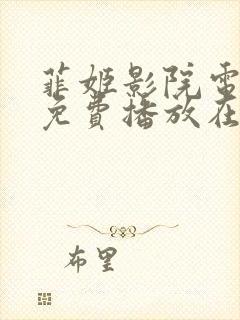 菲姬影院电
免費播放在
布里